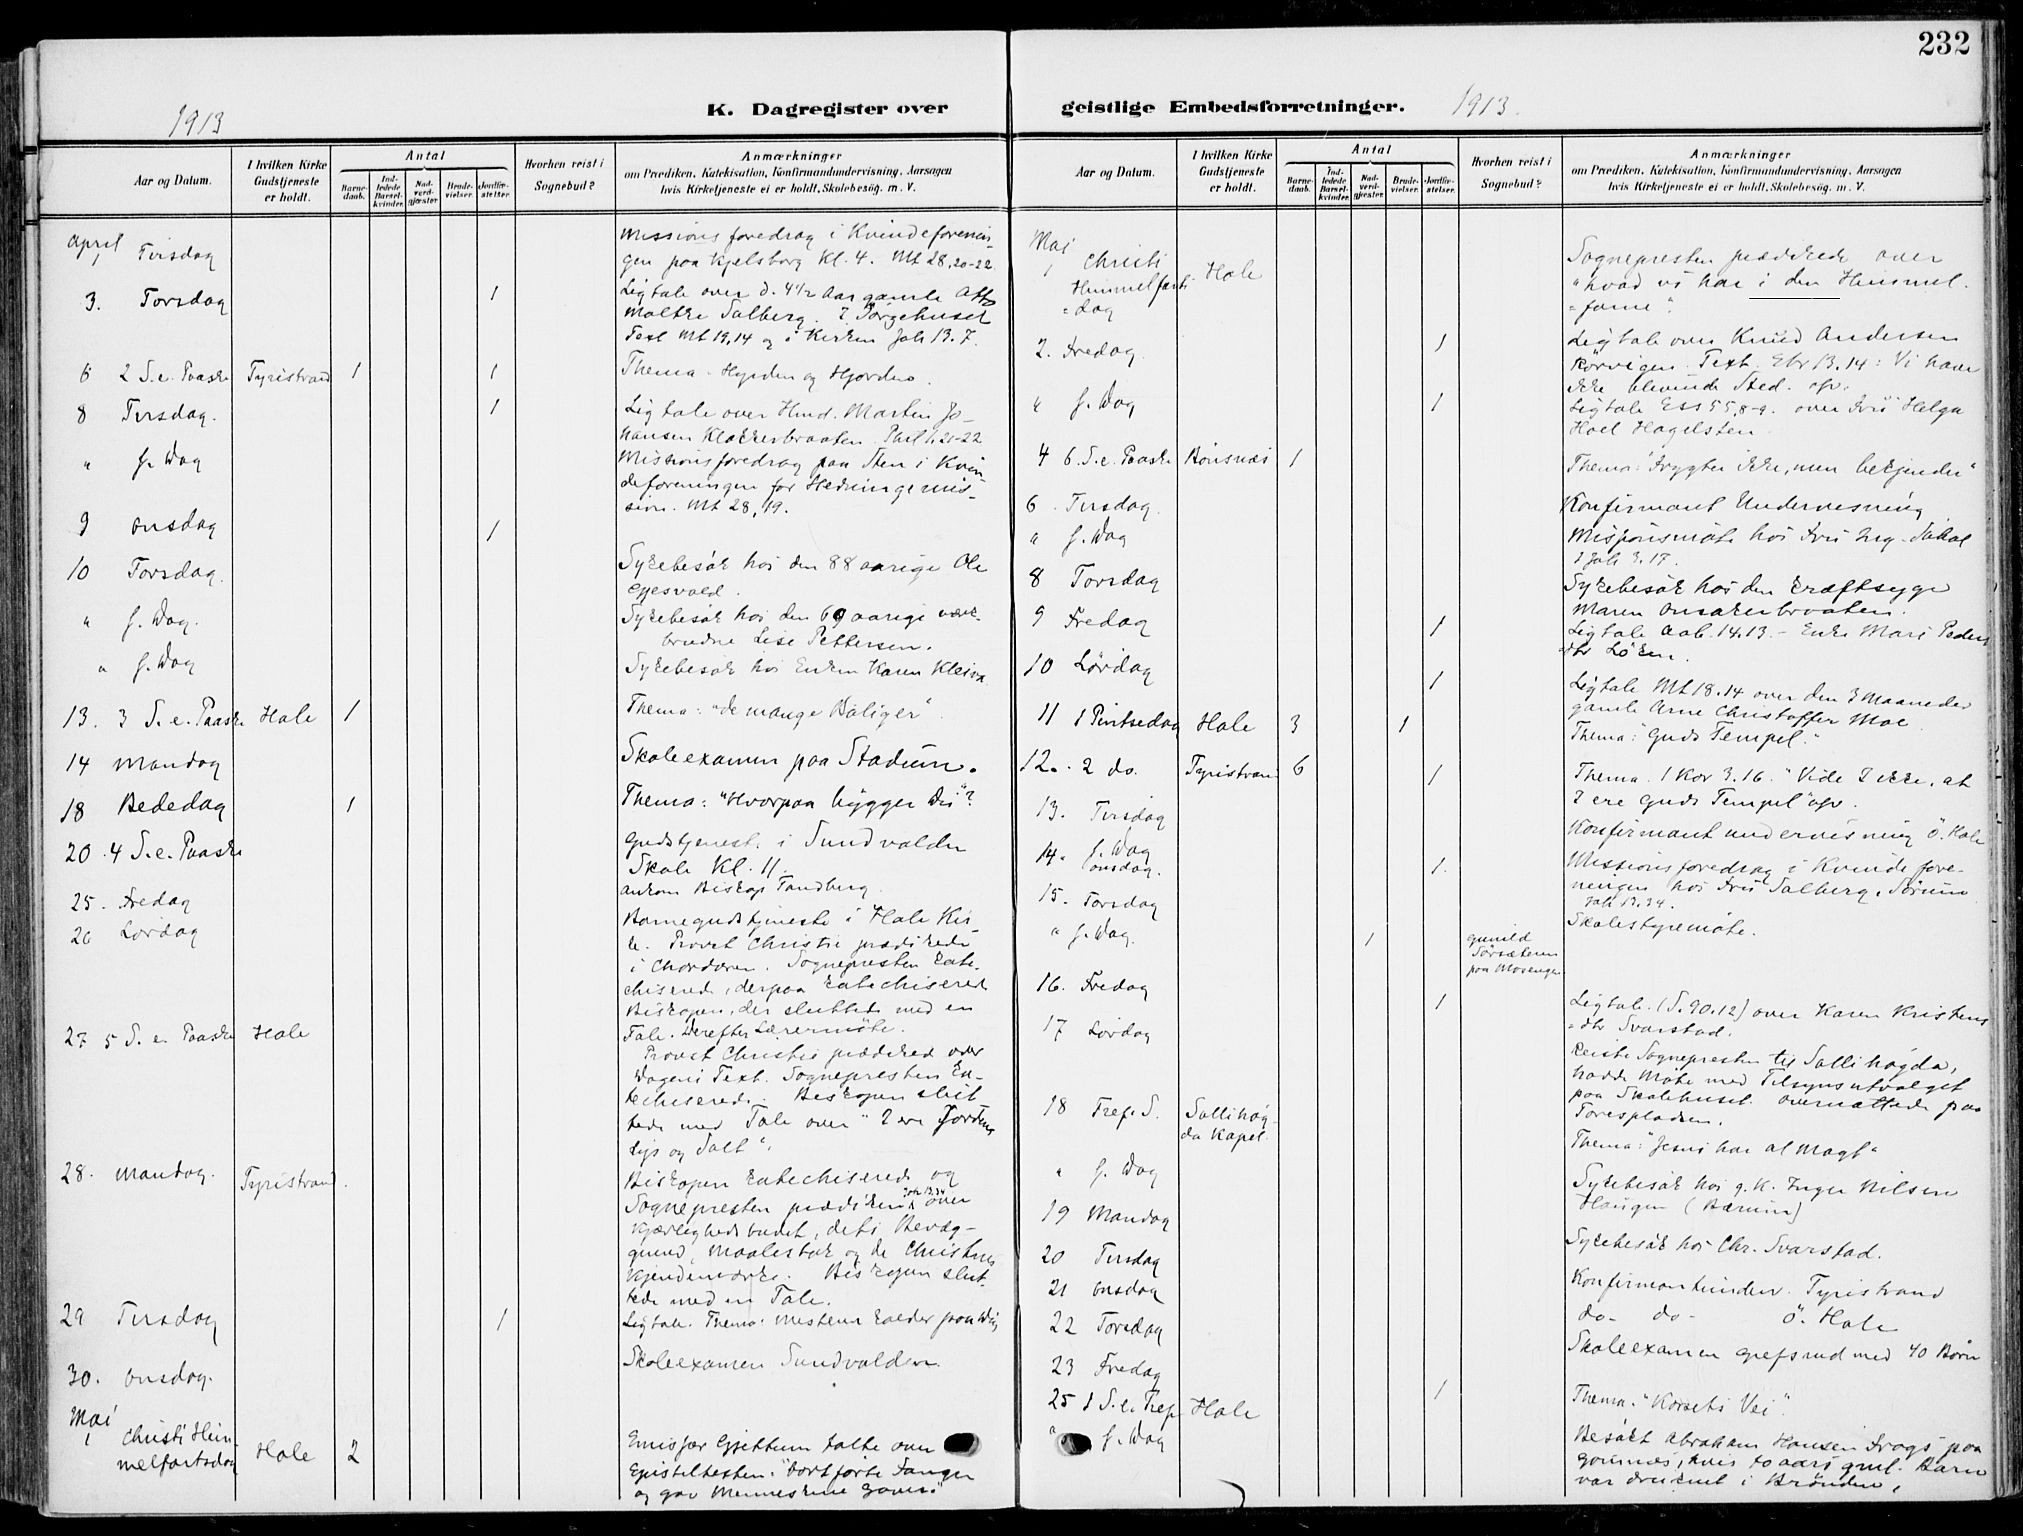 232
K. Dagregister over
geistlige Embedsforretninger.
1913
1913.
Aar og Datum.
I hvilken Kirke Gudstjeneste er holdt.
Antal
Barne-daab.
Ind-ledede Barsel-kvinder.
Nad-verd-gjæster.
Brude-vielser.
Jordfæ-stelser.
Hvorhen reist i Sognebud?
Anmærkninger
om Prædiken, Katekisation, Konfirmandundervisning, Aarsagen
hvis Kirketjeneste ei er holdt, Skolebesøg. m. V.
April
1 Tirsdag
Missions foredrag i Kvindeforenin-
gen paa Kjelsborg Kl. 4. Mt 28,20-22.
3. Torsdag 1
Ligtale over d. 4½ Aar gamle Otto
Moltke Salberg. I Sørgehuset
Text Mt 19,14 og i Kirken Joh 13.7.
6 2 S. e. Paaske Tyristrand 1 1
Thema. Hyrden og Hjorden.
8 Tirsdag. 1
Ligtale over Hmd. Martin Jo-
hansen Klokkerbraaten. Phil 1,21-22
" s. Dag
Missionsforedrag paa Sten i Kvin
deforeningen for Hedningemis-
sion. Mt 28,19.
9 Onsdag 1
10 Torsdag.
Sykebesök hos den 88 aarige Ole
" s. Dag.
Sykebesök hos den 69 aarige
Lise Pettersen.
" s. Dag
Sykebesök hos Enken Karen
13. 3 S. e. Paaske Hole 1
Thema: "de mange Boliger".
14 Mandag
Skoleexamen paa Stadum.
18 Bededag 1
Thema: "Hvorpaa bygger Du"?
20. 4 S. e. Paaske
Gudstjenest. i Sundvolden
Skole Kl. 11.
25. Fredag
ankom Biskop Tandberg.
26 Lördag
Barnegudstjeneste i Hole Kir
ke. Provst Christie prædikede
i Chordören. Sognepresten kate-
chiserede, derpaa katechiserede
Biskopen, der sluttede med en
Tale. Derefter Lærermöte.
27 5 S. e. Paaske Hole
Provst Christie prædiked over
Dagens Text. Sognepresten ka-
techiserede. Biskopen slut
tede med Tale over "I ere Jordens
Lys og Salt".
28. Mandag. Tyristrand.
Biskopen katechiserede og
Sognepresten prædiken Joh 13.34 over
Kjærlighedsbudet, dets Bevæg-
grund, Maalestok og de Christnes
Kjendemærke. Biskopen slut-
tede med en Tale.
29 Tirsdag 1
Ligtale. Thema: Mesteren kalder paa Dig
30. Onsdag.
Skoleexamen Sundvolden.
Mai
1 Christi Him-
melfartsdag Hole 2
Emissær Gjettum talte over
Epistelteksten: "bortförte Fanger
og gav Menneskene Gaver."
Aar og Datum.
I hvilken Kirke Gudstjeneste er holdt.
Antal
Barne-daab.
Ind-ledede Barsel-kvinder.
Nad-verd-gjæster.
Brude-vielser.
Jordfæ-stelser.
Hvorhen reist i Sognebud?
Anmærkninger
om Prædiken, Katekisation, Konfirmandundervisning, Aarsagen
hvis Kirketjeneste ei er holdt, Skolebesøg. m. V.
Mai
1 Christi
Himmelfarts-
dag Hole
Sognepresten prædikede over
"hvad vi har i den Himmel-
farne".
2. Fredag. 1
Ligtale over Knud Andersen
Rörvigen. Text. Ebr 13.14: Vi have
ikke blivende Sted. osv.
" s. Dag 1
Ligtale Es 55,8-9. over Fru Helga
Hoel Hagelsten.
4 6. S. e. Paaske Bönsnæs 1
Thema: "Frygter ikke, men bekjender"
6. Tirsdag.
Konfirmant Undervisning
" s. Dag
Missionsmöte hos Fru Ing.
1 Joh 3.17.
8 Torsdag
Sykebesök hos den kræftsyge
Maren Onsakerbraaten.
9 Fredag 1
Ligtale Aab. 14.13. - Enke Mari Peders
dtr Löken.
10 Lördag 1
Ligtale Mt 18.14 over den 3 Maaneder
gamle Arne Christoffer Moe
11 1 Pintsedag Hole 3 1
Thema: "Guds Tempel."
12. 2 do. Tyristrand 6 1
Thema. 1 Kor 3.16. "Vide I ikke, at
I ere Guds Tempel" osv.
13. Tirsdag
Konfirmant undervisning Ö. Hole
14. s. Dag
onsdag. 1.
Missionsforedrag i Kvindefore-
ningen hos Fru Salberg, Sörum
Joh 13.34.
15. Torsdag
Skolestyremöte.
" s. Dag. 1
Gunild
Sörsæteren
paa Mosengen
16. Fredag 1
Ligtale. (S. 90.12) over Karen Kristens
dtr Svarstad.
17 Lördag
reiste Sognepresten til Sollihögda,
hadde Möte med Tilsynsutvalget
paa Skolehuset. overnattede paa
Toresplassen.
18 Tref. S. Sollihög
da Kapel.
Thema: "Jesus har al Magt"
" s. Dag
Sykebesök hos g. K. Inger Nilsen
Haugen (Bærum)
19 Mandag
Sykebesök hos Chr. Svarstad.
20 Tirsdag
Konfirmantunderv. Tyristrand
21 Onsdag
do- do- Ö. Hole
22 Torsdag
Skoleexamen Gjefsrud med 40 Börn
23 Fredag
25 1 S. e. Tref. Hole 1
Thema. "Korsets Vei".
" s. Dag
Besökt Abraham Hansen Frogs paa
Gomnæs, hvis aars gml. Barn
var druknet i Brönden.